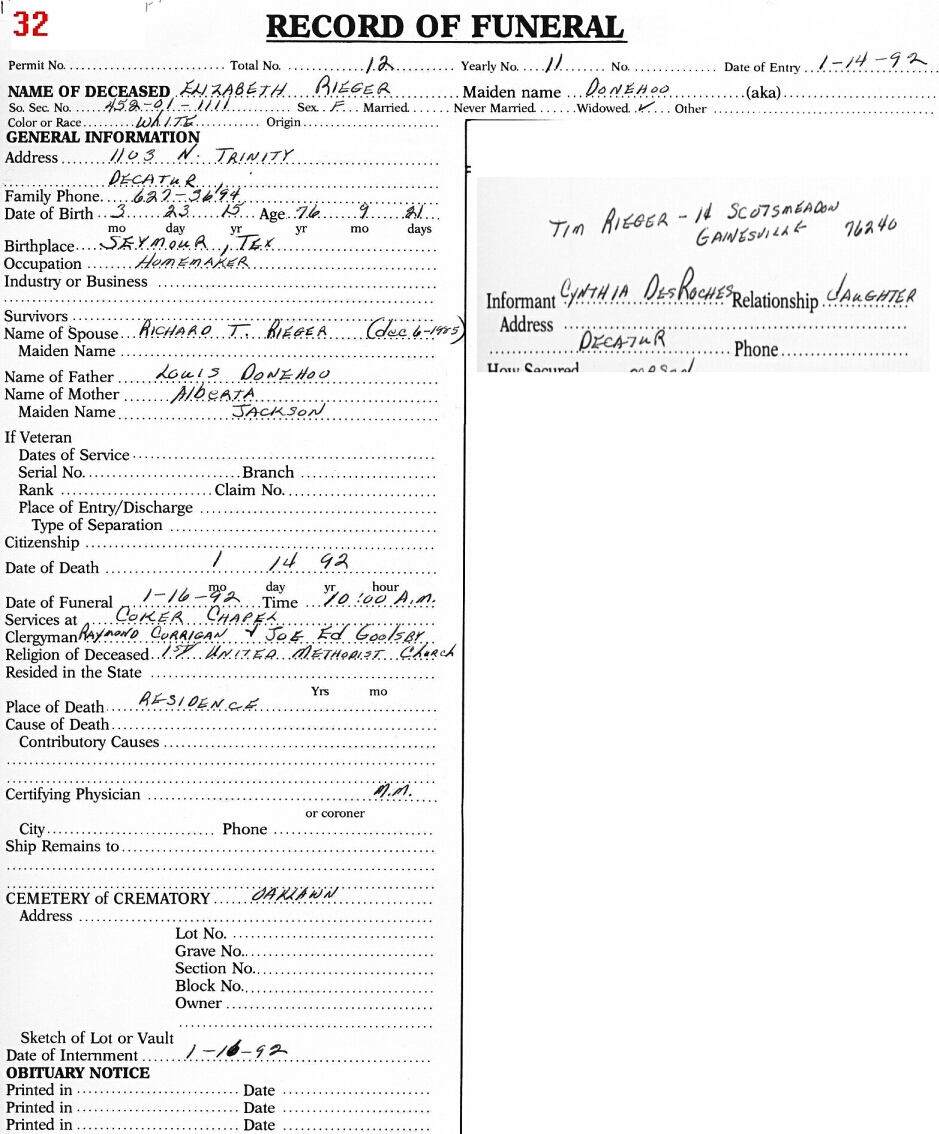 32
RECORD OF FUNERAL
Permit No. Total No. 12 Yearly No. 11 No. Date of Entry 1-14-92
NAME OF DECEASED ELIZABETH RIEGER Maiden name DONEHOO (aka)
So. Sec. No. 458-01-1111 Sex. F Married. Never Married. Widowed. ✓ Other
Color or Race WHITE Origin
GENERAL INFORMATION
Address 1103 N. TRINITY
DECATUR
Family Phone. 627-3694
Date of Birth 3 23 15 Age 76 9 21
mo day yr yr mo days
Birthplace SEYMOUR, TEX
Occupation HOMEMAKER
Industry or Business
Survivors
Name of Spouse RICHARD T. RIEGER (dec 6-1985)
Maiden Name
Name of Father LOUIS DONEHOO
Name of Mother AlbertA
Maiden Name JACKSON
If Veteran
Dates of Service
Serial No. Branch
Rank Claim No.
Place of Entry/Discharge
Type of Separation
Citizenship
Date of Death 1 14 92
mo day yr hour
Date of Funeral 1-16-92 Time 10:00 A.M.
Services at COKER CHAPEL
Clergyman RAYMOND CORRIGAN & JOE Ed GoolsBY
Religion of Deceased 1ST UNITED METHODIST Church
Resided in the State
Yrs mo
Place of Death RESIDENCE
Cause of Death
Contributory Causes
Certifying Physician M.M.
or coroner
City Phone
Ship Remains to
CEMETERY of CREMATORY OAKLAWN
Address
Lot No.
Grave No.
Section No.
Block No.
Owner
Sketch of Lot or Vault
Date of Internment 1-16-92
OBITUARY NOTICE
Printed in Date
Printed in Date
Printed in Date
TIM RIEGER - 14 SCOTSMEADOW
GAINESVILLE 76240
Informant CYNTHIA DESROCHES Relationship DAUGHTER
Address
DECATUR Phone
How Secured